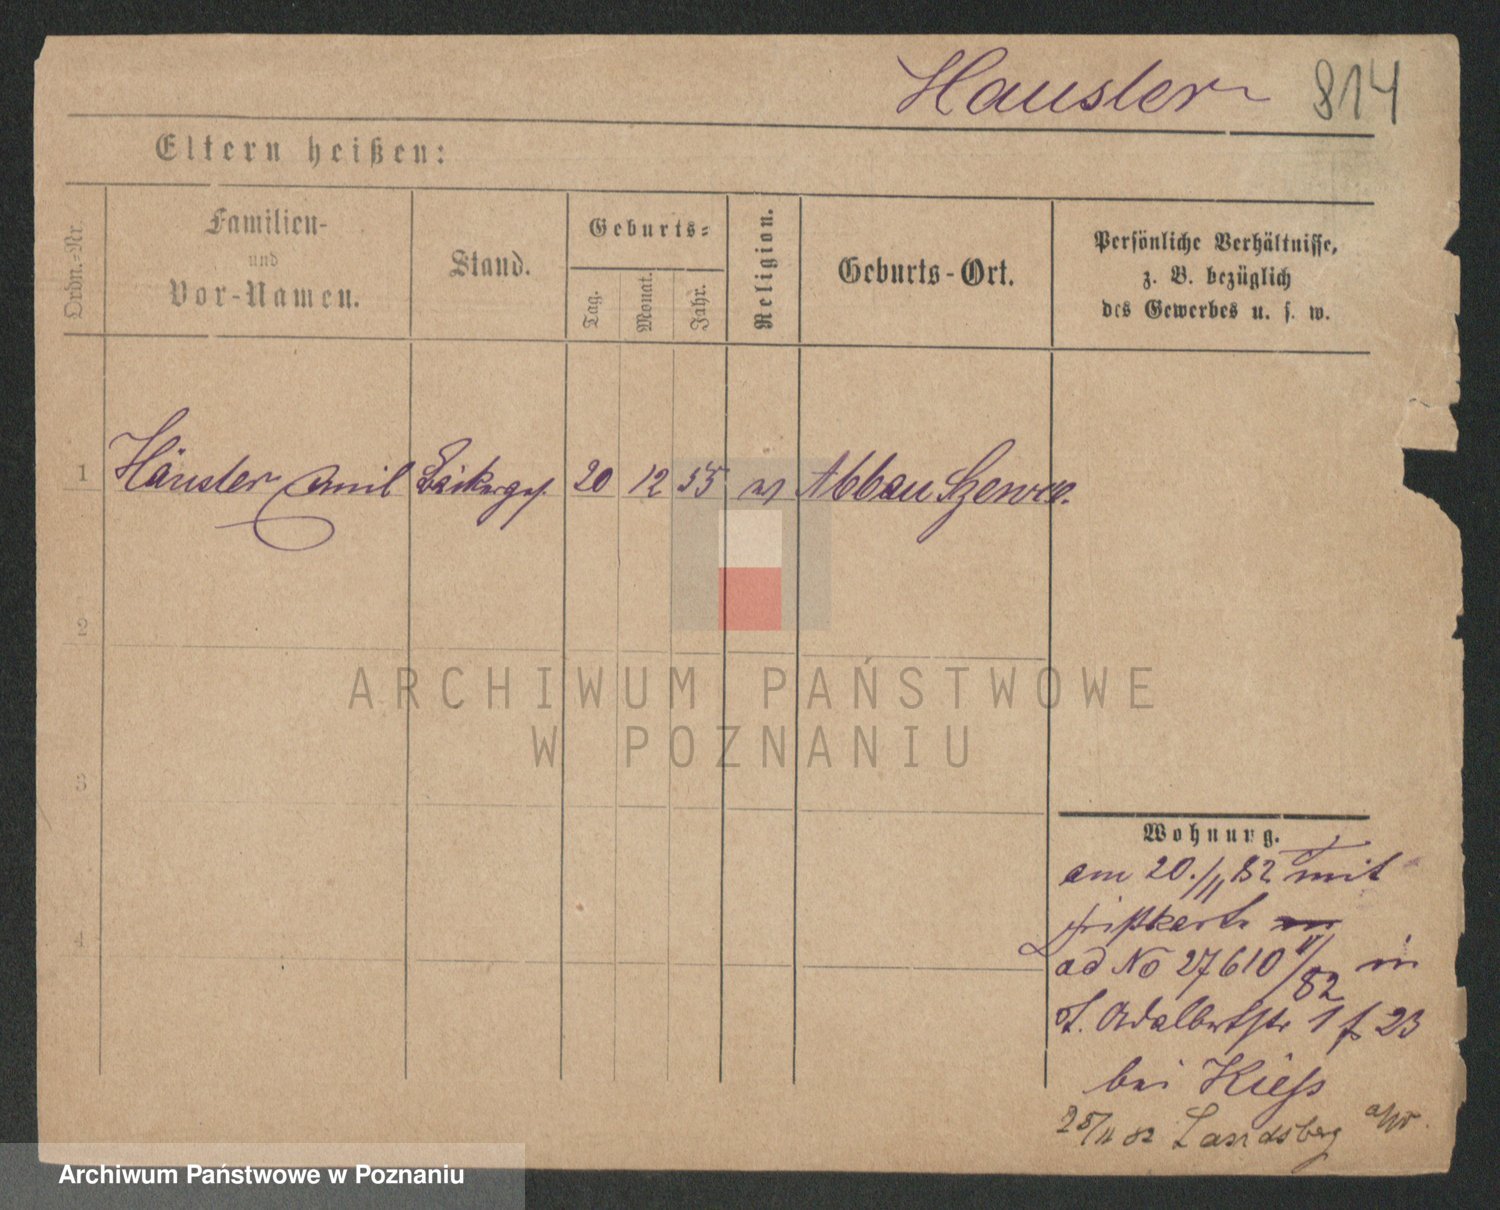 Hausler 814
Eltern heißen:
Ordn.-Nr.
Familien-
und
Vor-Namen.
Stand.
Geburts-
Tag.
Monat.
Jahr.
Religion.
Geburts-Ort.
Persönliche Verhältnisse,
z. B. bezüglich
des Gewerbes u. s. w.
1 Häusler Emil Bäckerges. 20 12 55 ev Abbau Szewce.
2
3
4
ARCHIWUM PAŃSTWOWE
W POZNANIU
Wohnung.
am 20./11 82 mit
ad No 27610 11/82 in
St. Adalbertstr 1 f 23
bei Kiess
25/11 82 Landsberg a/W.
Archiwum Państwowe w Poznaniu